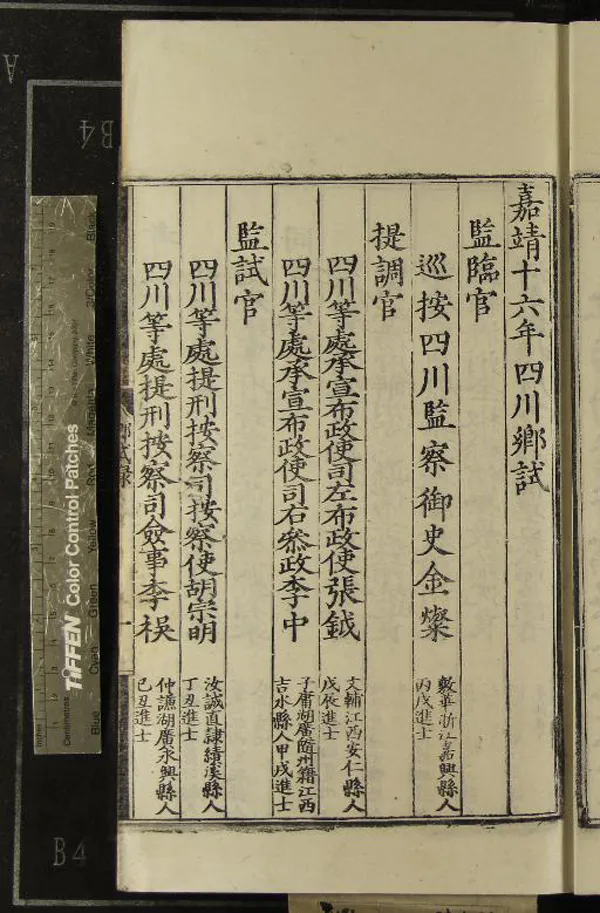 嘉靖十六年四川鄉試
監臨官
巡按四川監察御史金燦
敷華浙江嘉興縣人
丙戌進士
提調官
四川等處承宣布政使司左布政使張鉞
文輔江西安仁縣人
戊辰進士
四川等處承宣布政使司右叅政李中
子庸湖廣隨州籍江西
吉水縣人甲戌進士
監試官
四川等處提刑按察司按察使胡宗明
汝誠直隸績溪縣人
丁丑進士
四川等處提刑按察司僉事李
仲謙湖廣永興縣人
己丑進士
鄉試錄
一
A
B4
B4
TIFFEN Color Control Patches
Centimetres
Inches
Blue
Cyan
Green
Yellow
Red
Magenta
White
3/Color
Black